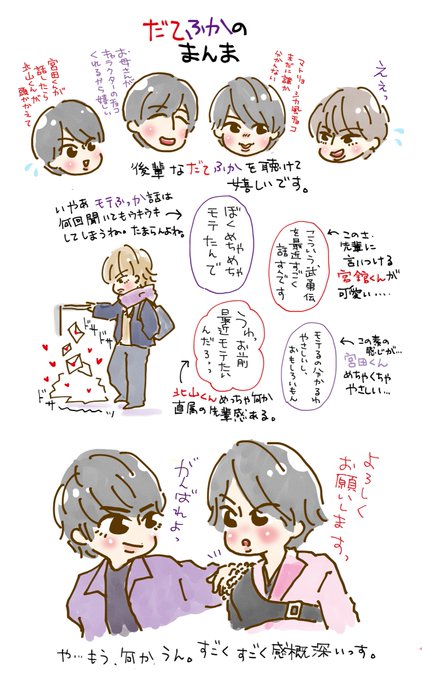 だてふかの
まんま
宮田くんが
話したら
北山くんが
頭かかえて
お母さんが
キャラクターのチョコ
くれるから嬉しい
マトリョーシカ風チョコ
まだに誰か
分かんない
ええっ
後輩なだてふかを聴けて
嬉しいです。
いやあ モテふっか話は
何回聞いてもウキウキ
してしまうね。たまらんよね。
ぼくめちゃめちゃ
モテたんで
こういう武勇伝
を最近すごく
話すんです
このさ、
先輩に
言いつける
宮舘くんが
可愛い…
ドサ
ドサ
ドサ
うわっ、お前
最近モテたい
んだろ?
北山くんめっちゃ何か
直属の先輩感ある。
モテるの分かるわ
やさしいし、
おもしろいもん
この素の
感じが…
宮田くん
めちゃくちゃ
やさしい…
がんばれよっ
よろしく
お願いしますっ
や…もう、何か うん。すごくすごく感慨深いっす。